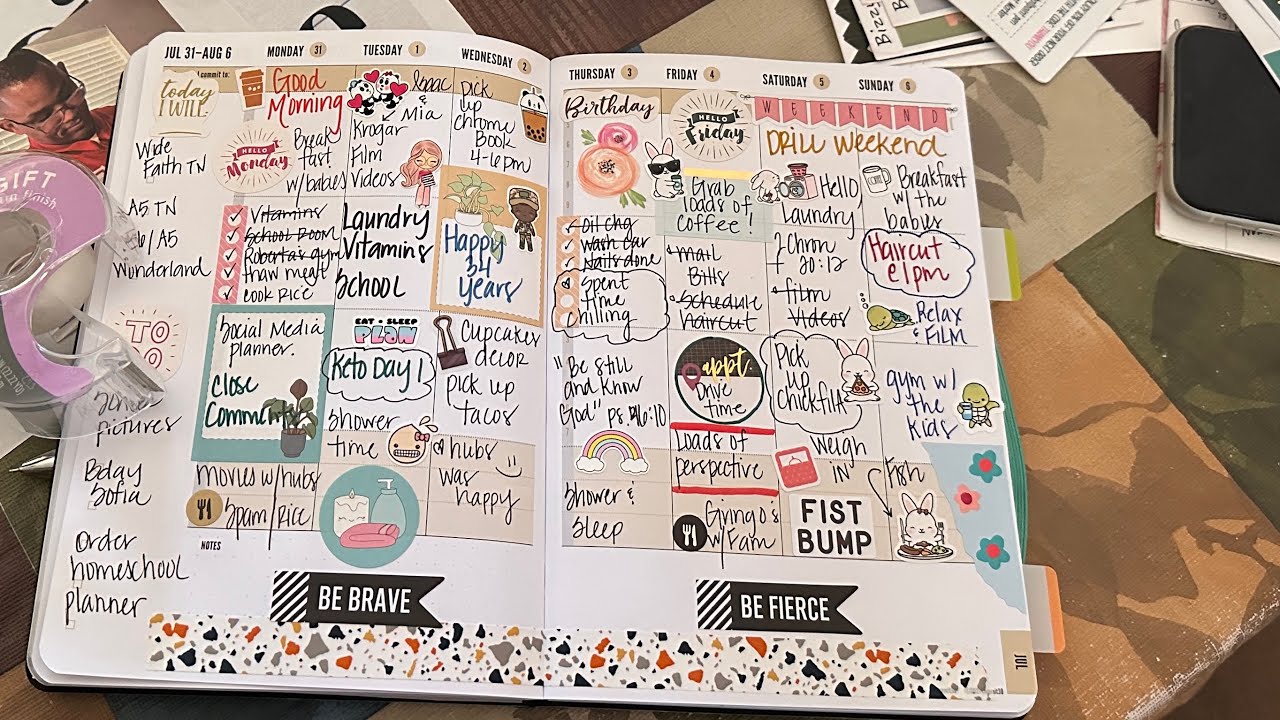 JUL 31–AUG 6
commit to:
today
I WILL
Wide
Faith TN
A5 TN
Wonderland
TO
DO
pictures
Bday
Sofia
Order
homeschool
planner
GIFT
MONDAY 31
Good
Morning
HELLO
Monday
Break
fast
w/babies
Vitamins
School Room
Roberta's gym
thaw meat
cook rice
Social Media
planner.
Close
Community
movies w/hubs
Spam/Rice
NOTES
TUESDAY 1
Isaac
&
Mia
Krogar
Film
Videos
Laundry
Vitamins
School
EAT · SLEEP
PLAN
Keto Day 1
Shower
time
WEDNESDAY 2
pick
up
chrome
Book
4-6pm
Happy
34
years
Cupcake
decor
pick up
tacos
hubs
was
happy
BE BRAVE
THURSDAY 3
Birthday
Oil Chg
Wash Car
Nails done
Spent
time
chilling
"Be still
and Know
God" ps. 46:10
Shower &
Sleep
FRIDAY 4
HELLO
Friday
Grab
loads of
Coffee!
Mail
Bills
Schedule
haircut
appt.
Drive
time
Loads of
perspective
Gringo's
w/Fam
SATURDAY 5
WEEKEND
DRILL WEEKEND
Hello
Laundry
2 Chron
20:12
film
videos
Pick
up
ChickfilA
Weigh
IN
FIST
BUMP
SUNDAY 6
Breakfast
w/ the
babies
Haircut
@1pm
Relax
& FILM
gym w/
the
Kids
Fish
BE FIERCE
JUL